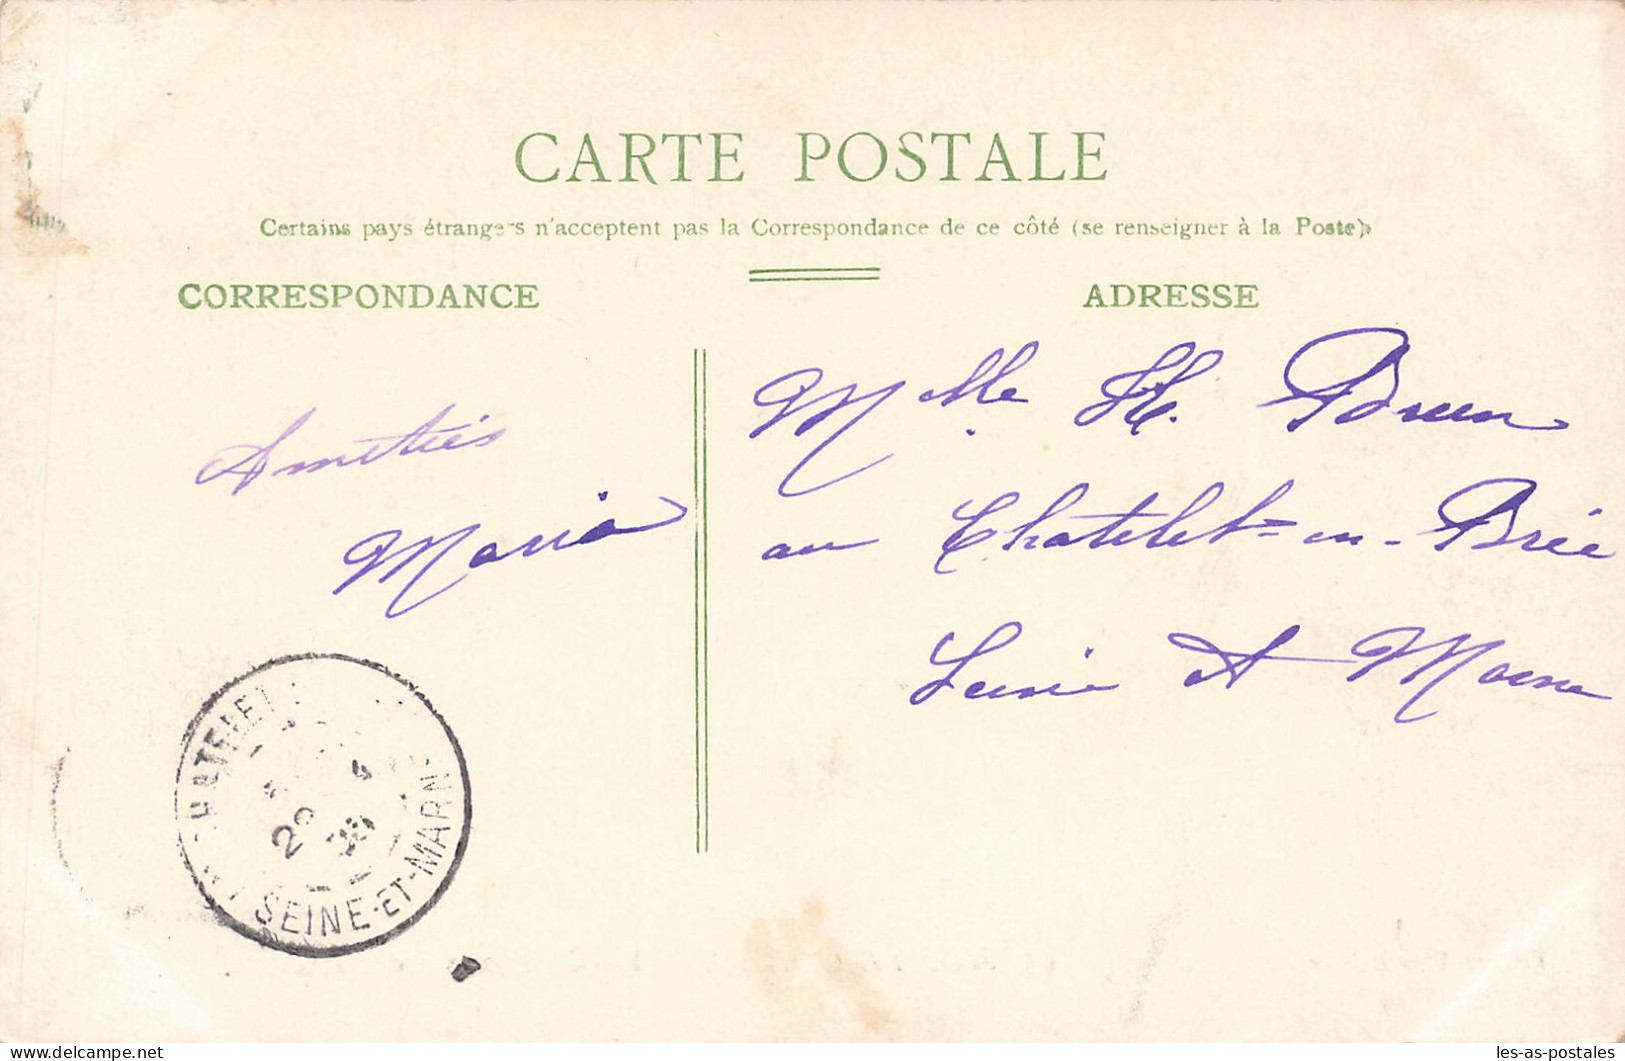 CARTE POSTALE
Certains pays étrangers n'acceptent pas la Correspondance de ce côté (se renseigner à la Poste)
CORRESPONDANCE
ADRESSE
Amitiés
Maria
Mlle H. Brun
au Chatelet-en-Brie
Seine et Marne
SEINE-ET-MARN
delcampe.net
les-as-postales